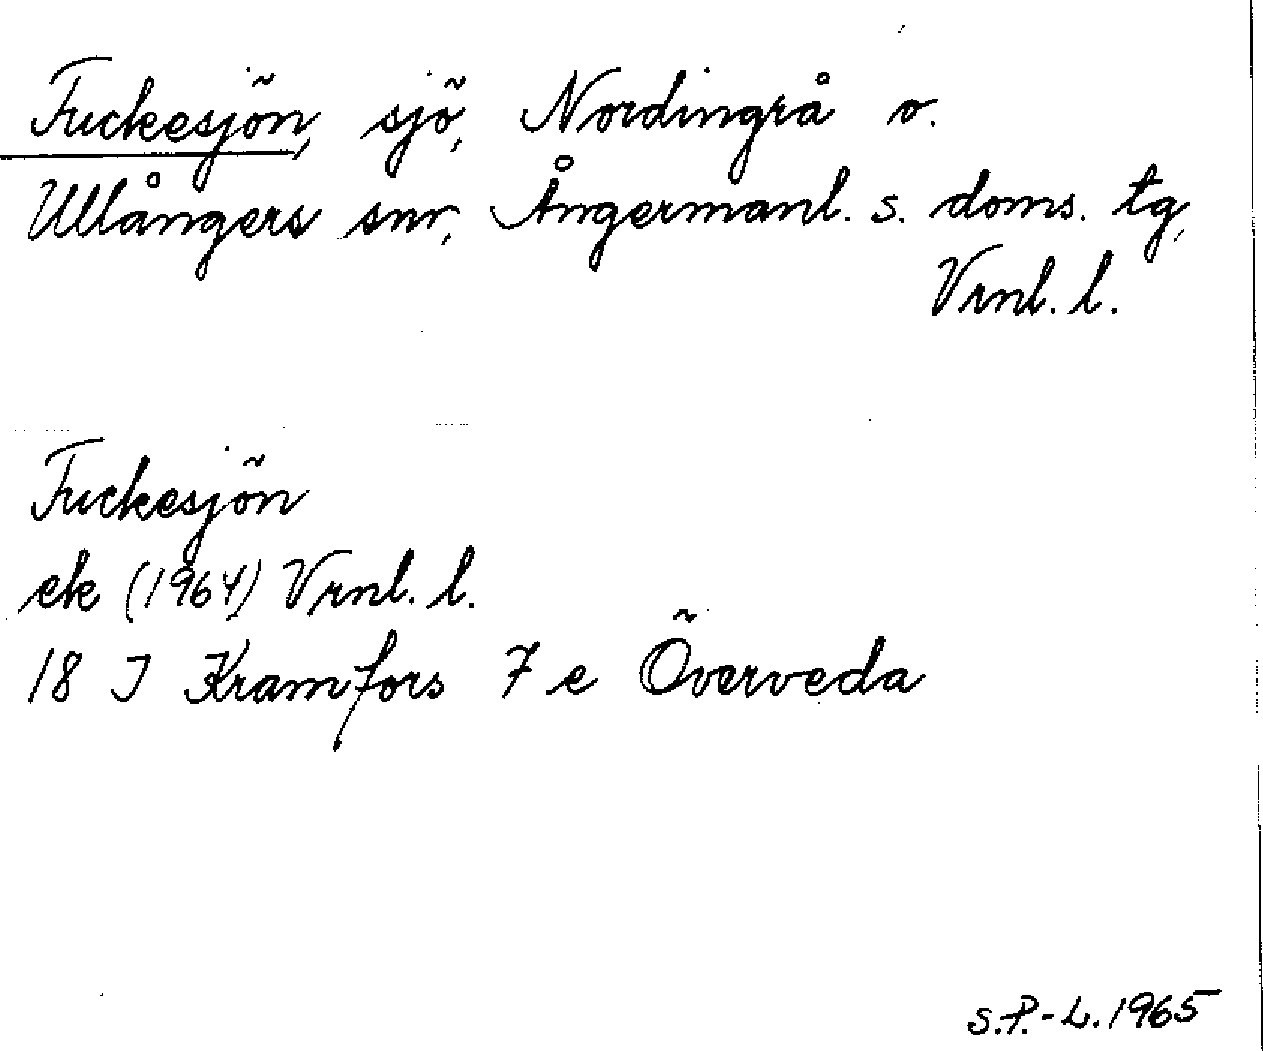 Fuckesjön, sjö, Nordingrå o.
Ullångers snr, Ångermanl. s. doms. tg,
Vrnl. l.
Fuckesjön
ek (1964) Vrnl. l.
18 J Kramfors 7 e Överveda
S.P.-L. 1965